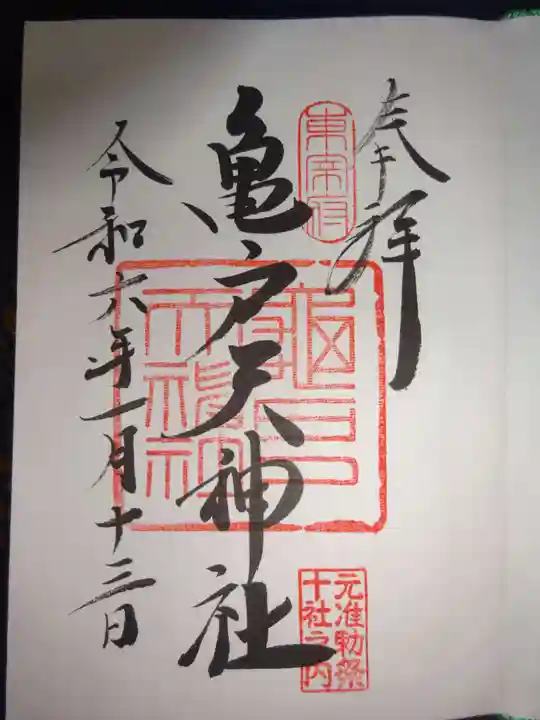 奉拝
東宰府
亀戸天神社
令和六年一月十三日
元准勅祭
十社之内